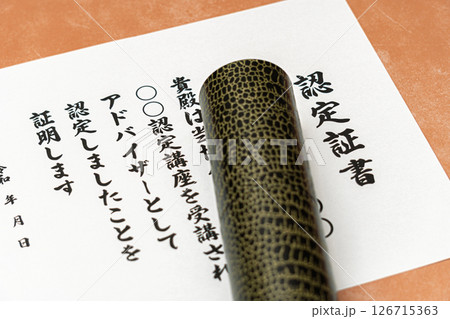 認定証書
〇
貴殿は当
講座を受講され
〇〇認定
アドバイザーとして
認定しましたことを
証明します
令和 年 月 日
126715363